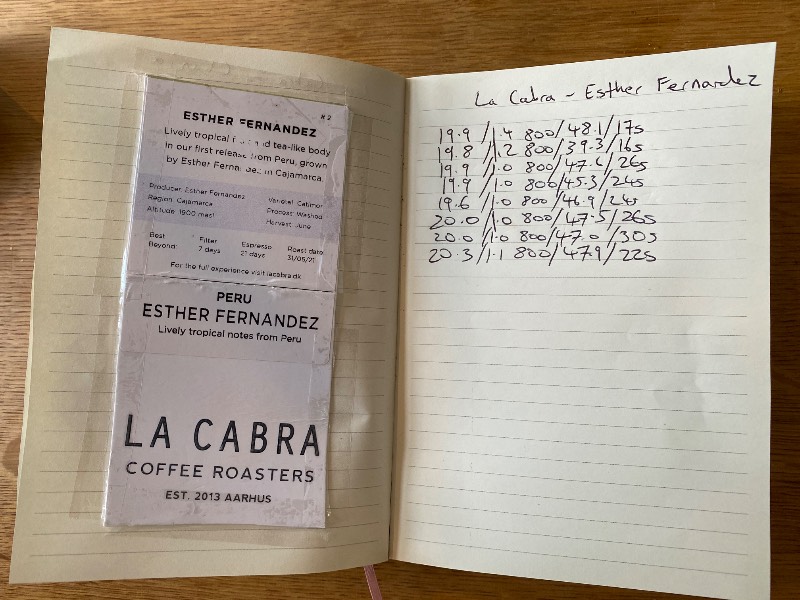 #2
ESTHER FERNANDEZ
Lively tropical and tea-like body
in our first release from Peru, grown
by Esther Fernandez in Cajamarca.
Producer: Esther Fernandez
Region: Cajamarca
Altitude: 1900 masl
Varietal: Catimor
Process: Washed
Harvest: June
Best
Beyond:
Filter
7 days
Espresso
21 days
Roast date
31/05/21
For the full experience visit lacabra.dk
PERU
ESTHER FERNANDEZ
Lively tropical notes from Peru
LA CABRA
COFFEE ROASTERS
EST. 2013 AARHUS
La Cabra - Esther Fernandez
19.9 /1.4 800/48.1/17s
19.8 /1.2 800/39.3/16s
19.9 /1.0 800/47.6/26s
19.9 /1.0 800/45.3/24s
19.6 /1.0 800/46.9/24s
20.0 /1.0 800/47.5/26s
20.0 /1.0 800/47.0/30s
20.3 /1.1 800/47.9/22s